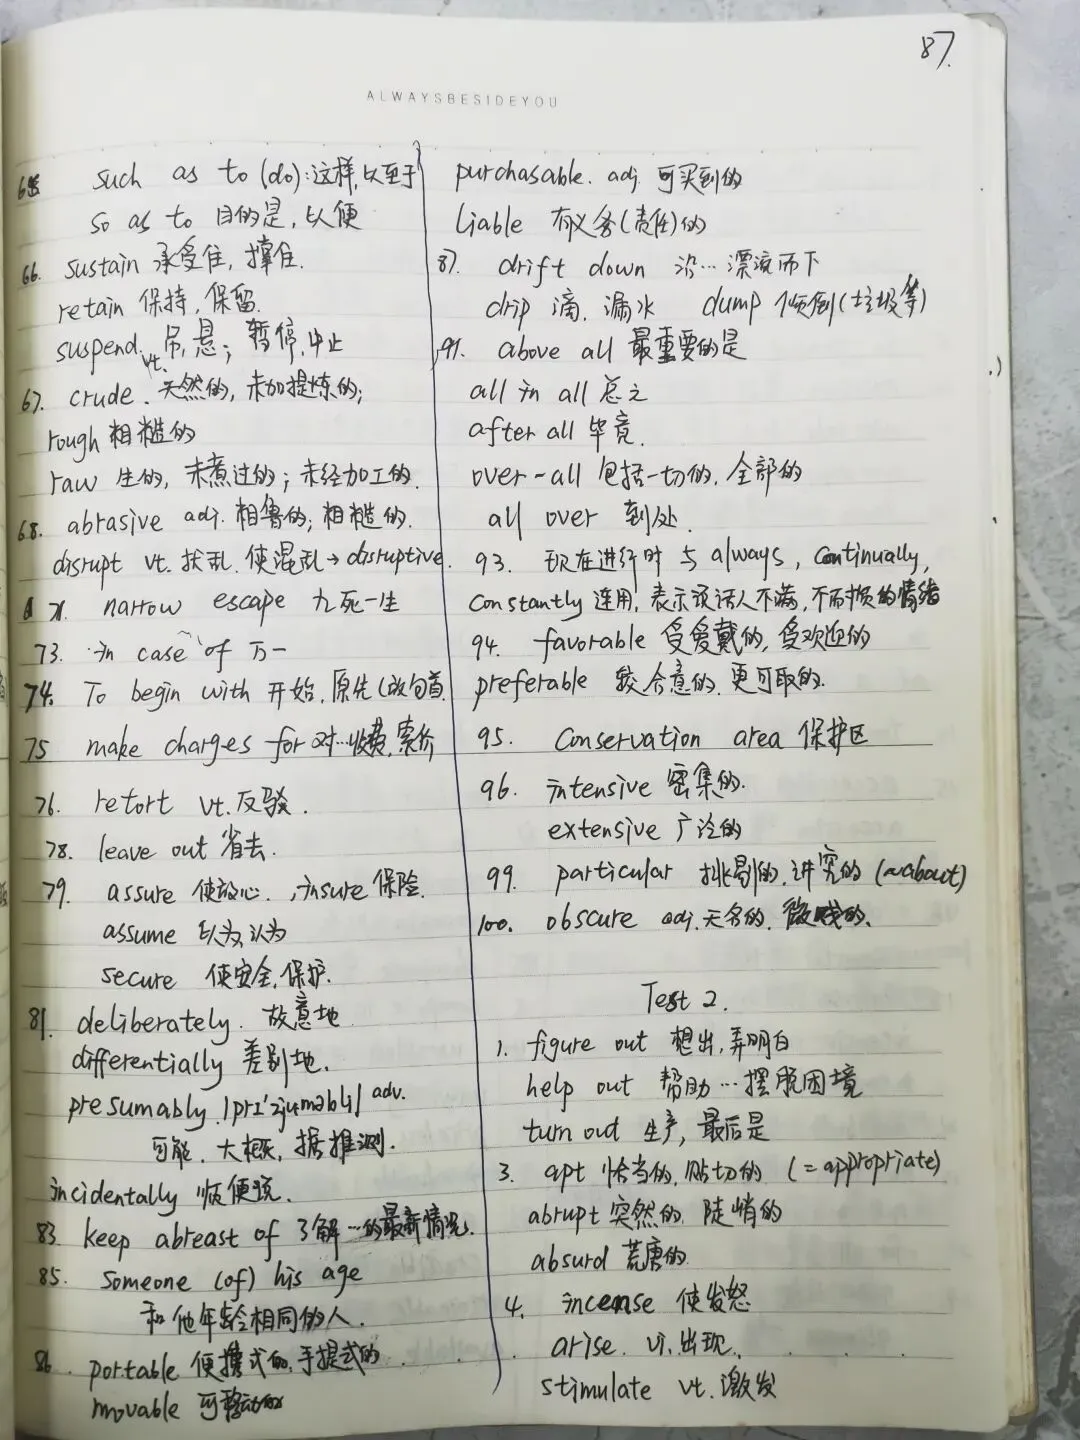 87.
ALWAYSBESIDEYOU
such as to (do):这样,以至于
so as to 目的是,以便
66. sustain 承受住,撑住.
retain 保持,保留.
suspend. vt. 吊,悬;暂停,中止
67. crude. 天然的,未加提炼的;
rough 粗糙的
raw 生的,未煮过的;未经加工的.
68. abrasive adj. 粗鲁的;粗糙的.
disrupt vt. 扰乱.使混乱→disruptive.
71. narrow escape 九死一生
73. in case of 万一
74. To begin with 开始,原先(放句首
75 make charges for 对…收费,索价
76. retort vt.反驳.
78. leave out 省去.
79. assure 使放心.,insure 保险.
assume 以为,认为
secure 使安全,保护.
81. deliberately. 故意地
differentially 差别地.
presumably. /pri'zjuməbli/ adv.
可能.大概,据推测.
incidentally 顺便说.
83. keep abreast of 了解…的最新情况.
85. someone (of) his age
和他年龄相同的人.
86. portable 便携式的,手提式的
movable 可移动的
purchasable. adj. 可买到的
liable 有义务(责任)的
87. drift down 沿…漂流而下
drip 滴,漏水 dump 倾倒(垃圾等)
91. above all 最重要的是
all in all 总之
after all 毕竟.
over-all 包括一切的,全部的
all over 到处.
93. 现在进行时与always, continually,
constantly 连用,表示说话人不满,不耐烦的情绪
94. favorable 受爱戴的,受欢迎的
preferable 较合意的,更可取的.
95. Conservation area 保护区
96. intensive 密集的.
extensive 广泛的
99. particular 挑剔的,讲究的 (~about)
100. obscure adj.无名的,微贱的.
Test 2.
1. figure out 想出,弄明白
help out 帮助…摆脱困境
turn out 生产,最后是
3. apt 恰当的,贴切的 (=appropriate)
abrupt 突然的,陡峭的
absurd 荒唐的.
4. incense 使发怒
arise. vi.出现.
stimulate vt.激发